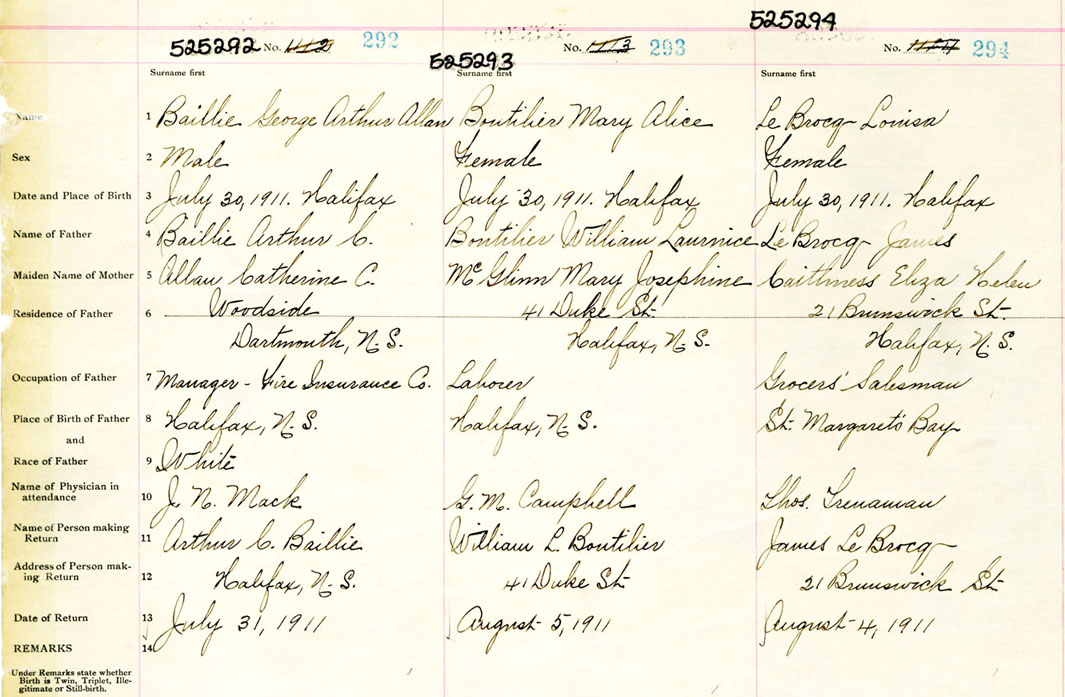 525294
525292 No. 1112 292
525293 No. 1113 293
No. 1114 294
Surname first Surname first Surname first
Name 1 Baillie George Arthur Allan Boutilier Mary Alice Le Brocq Louisa
Sex 2 Male Female Female
Date and Place of Birth 3 July 30, 1911. Halifax July 30, 1911. Halifax July 30, 1911. Halifax
Name of Father 4 Baillie Arthur C. Boutilier William Laurnice Le Brocq James
Maiden Name of Mother 5 Allan Catherine C. McGlinn Mary Josephine Caithness Eliza Helen
Residence of Father 6 Woodside 41 Duke St. 21 Brunswick St.
Dartmouth, N.S. Halifax, N.S. Halifax, N.S.
Occupation of Father 7 Manager - Fire Insurance Co. Laborer Grocers' Salesman
Place of Birth of Father 8 Halifax, N.S. Halifax, N.S. St. Margaret's Bay
and
Race of Father 9 White
Name of Physician in
attendance 10 J. N. Mack G. M. Campbell Thos. Trenaman
Name of Person making
Return 11 Arthur C. Baillie William L. Boutilier James Le Brocq
Address of Person mak-
ing Return 12 Halifax, N.S. 41 Duke St 21 Brunswick St
Date of Return 13 July 31, 1911 August 5, 1911 August 4, 1911
REMARKS 14
Under Remarks state whether
Birth is Twin, Triplet, Ille-
gitimate or Still-birth.